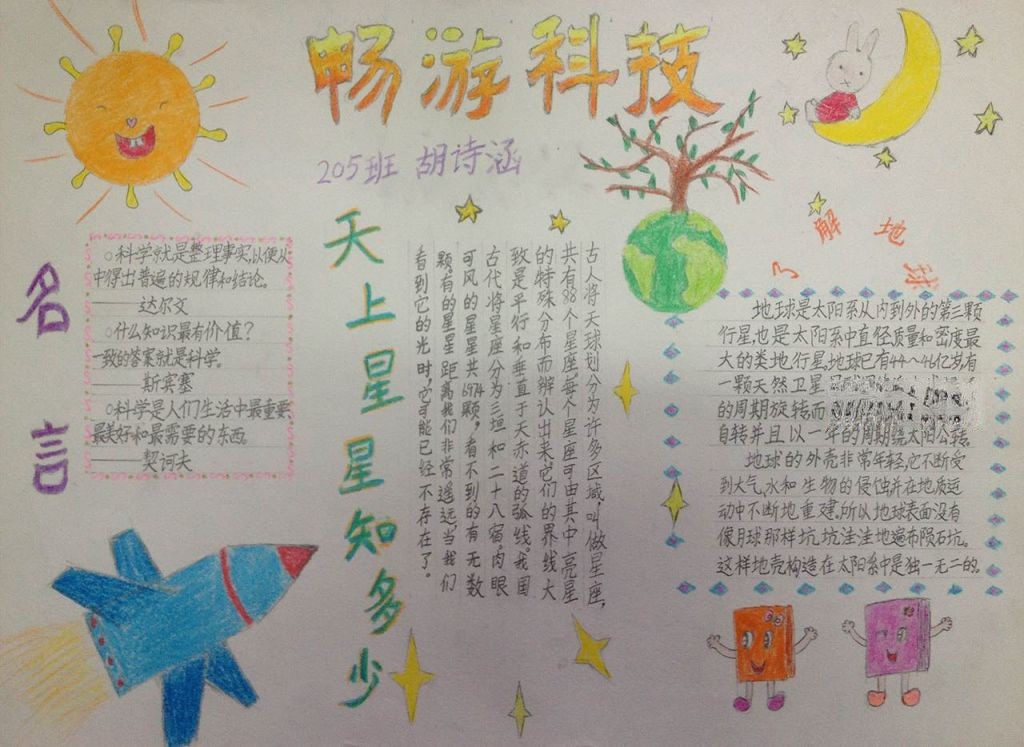 畅游科技
205班 胡诗涵
名言
○科学就是整理事实,以便从
中得出普遍的规律和结论。
——达尔文
○什么知识最有价值?
一致的答案就是科学。
——斯宾塞
○科学是人们生活中最重要
最美好和最需要的东西。
——契诃夫
天上星星知多少
古人将天球划分为许多区域,叫做星座,
共有88个星座。每个星座可由其中亮星
的特殊分布而辨认出来。它们的界线大
致是平行和垂直于天赤道的弧线。我国
古代将星座分为三垣和二十八宿。肉眼
可见的星星共6974颗,看不到的有无数
颗。有的星星距离我们非常遥远,当我们
看到它的光时,它可能已经不存在了。
了解地球
地球是太阳系从内到外的第三颗
行星,也是太阳系中直径质量和密度最
大的类地行星。地球已有44~46亿岁,有
一颗天然卫星
的周期旋转而
自转并且以一年的周期绕太阳公转。
地球的外壳非常年轻,它不断受
到大气,水和生物的侵蚀并在地质运
动中不断地重建。所以地球表面没有
像月球那样坑坑洼洼地遍布陨石坑。
这样地壳构造在太阳系中是独一无二的。